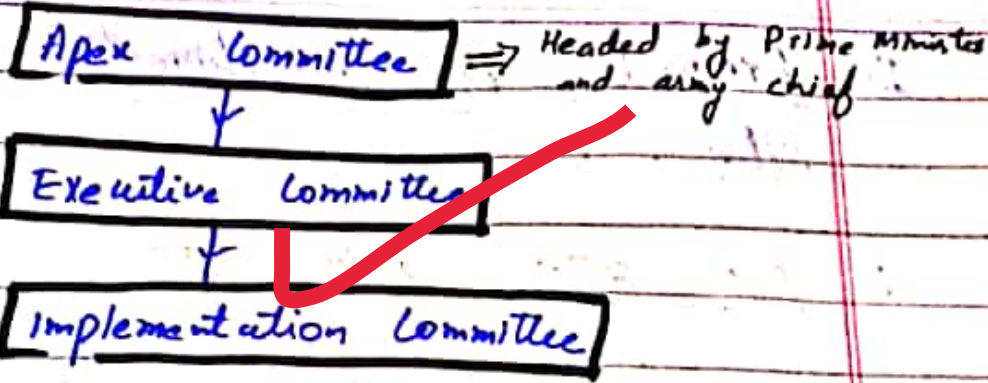 Apex Committee ⇒ Headed by Prime Minister
and army chief
Executive Committee
Implementation Committee